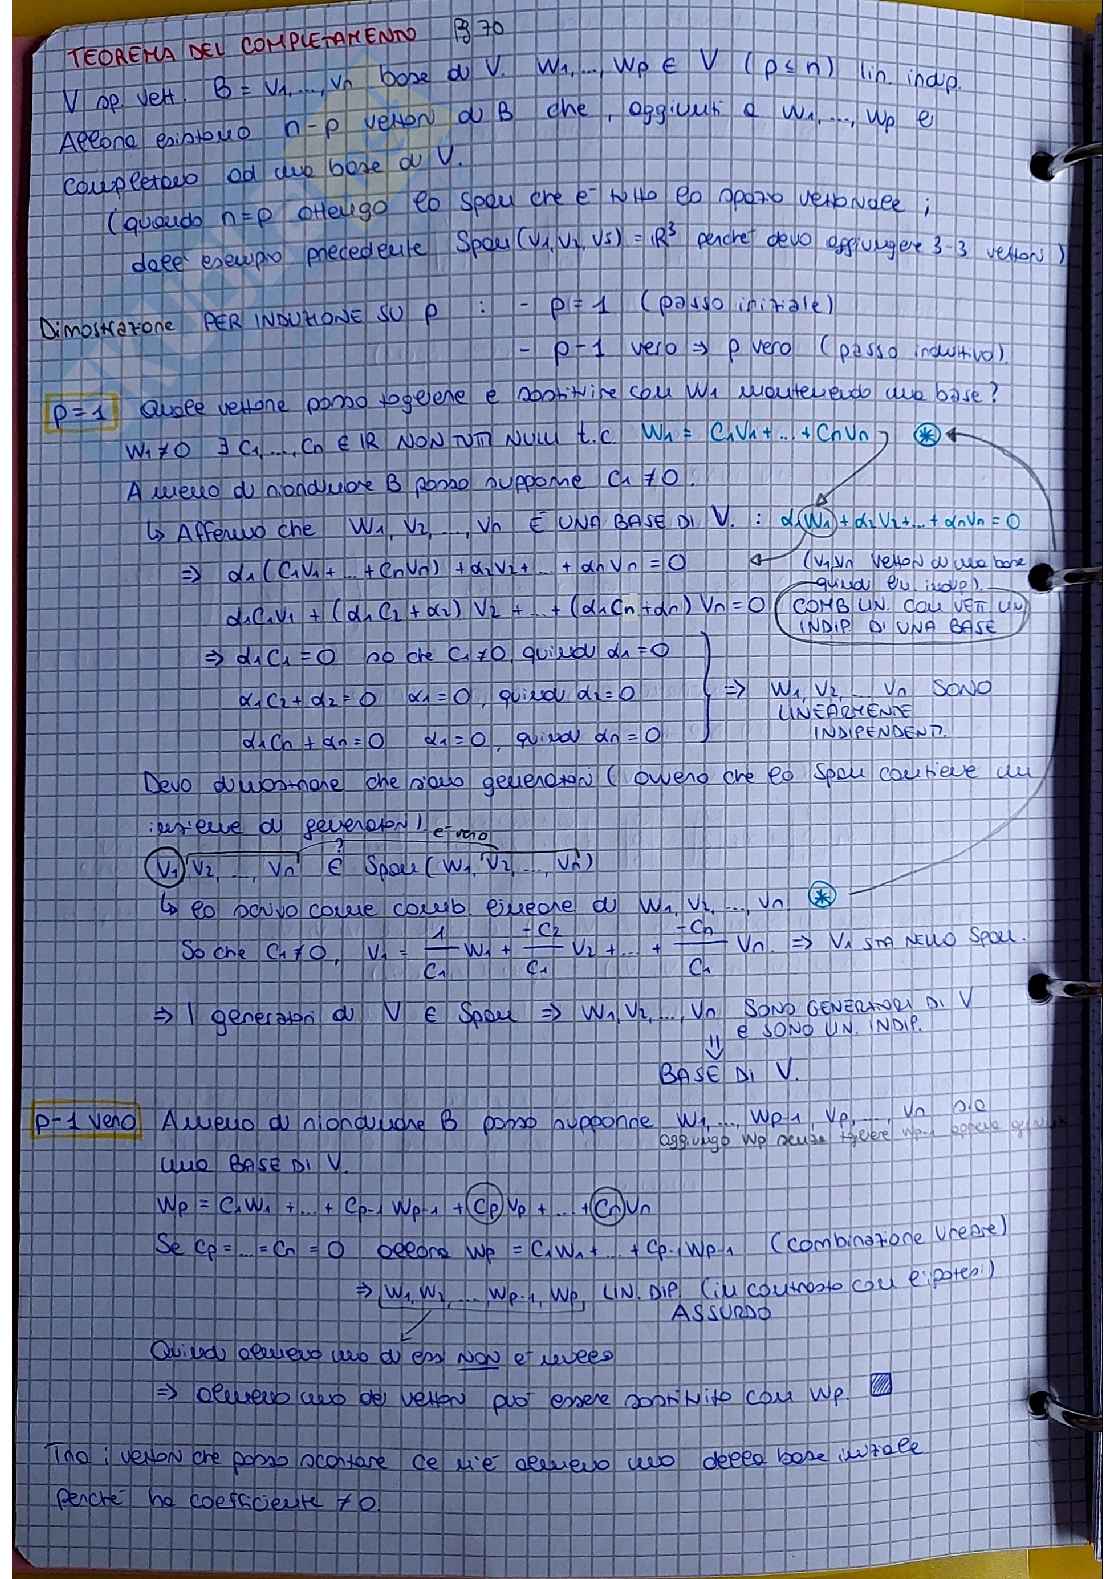 TEOREMA DEL COMPLETAMENTO Pg 70
V sp. vett. B = V1,..., Vn base di V. W1,..., Wp ∈ V (p ≤ n) lin. indip.
Allora esistono n-p vettori di B che, aggiunti a W1,..., Wp e
completano ad una base di V.
(quando n=p ottengo lo Span che è tutto lo spazio vettoriale ;
dall' esempio precedente Span (V1, V2, V3) = R³ perché devo aggiungere 3-3 vettori)
Dimostrazione PER INDUZIONE SU p : - p=1 (passo iniziale)
- p-1 vero ⇒ p vero (passo induttivo)
p=1 Quale vettore posso togliere e sostituire con W1 mantenendo una base?
W1 ≠ 0 ∃ C1,..., Cn ∈ R NON TUTTI NULLI t.c. W1 = C1V1 + ... + CnVn ⊛
A meno di riordinare B posso supporre C1 ≠ 0.
↳ Affermo che W1, V2, ..., Vn È UNA BASE DI V. : α1W1 + α2V2 + ... + αnVn = 0
⇒ α1(C1V1 + ... + CnVn) + α2V2 + ... + αnVn = 0 (V1,Vn vettori di una base
quindi lin indip).
α1C1V1 + (α1C2 + α2) V2 + ... + (α1Cn + αn) Vn = 0 COMB LIN. CON VETT LIN
INDIP DI UNA BASE
⇒ α1C1 = 0 so che C1 ≠ 0, quindi α1 = 0
α1C2 + α2 = 0 α1 = 0, quindi α2 = 0 ⇒ W1, V2, ... Vn SONO
LINEARMENTE
α1Cn + αn = 0 α1 = 0, quindi αn = 0 INDIPENDENTI.
Devo dimostrare che siano generatori (ovvero che lo Span contiene un
insieme di generatori)
è vero
V1, V2, ..., Vn ∈? Span (W1, V2, ..., Vn)
↳ lo scrivo come comb lineare di W1, V2, ..., Vn ⊛
So che C1 ≠ 0, V1 = 1/C1 W1 + -C2/C1 V2 + ... + -Cn/C1 Vn ⇒ V1 STA NELLO SPAN.
⇒ I generatori di V ∈ Span ⇒ W1, V2, ..., Vn SONO GENERATORI DI V
e SONO LIN. INDIP.
⇓
BASE DI V.
p-1 vero A meno di riordinare B posso supporre W1, ..., Wp-1, Vp, ..., Vn sia
aggiungo Wp senza
una BASE DI V.
Wp = C1W1 + ... + Cp-1 Wp-1 + CpVp + ... + CnVn
Se Cp = ... = Cn = 0 allora Wp = C1W1 + ... + Cp-1Wp-1 (combinazione lineare)
⇒ W1, W2, ..., Wp-1, Wp LIN. DIP. (in contrasto con l'ipotesi)
ASSURDO
Quindi almeno uno di essi NON è nullo
⇒ almeno uno dei vettori può essere sostituito con Wp.
Tra i vettori che posso scartare ce n'è almeno uno della base iniziale
perché ha coefficiente ≠ 0.